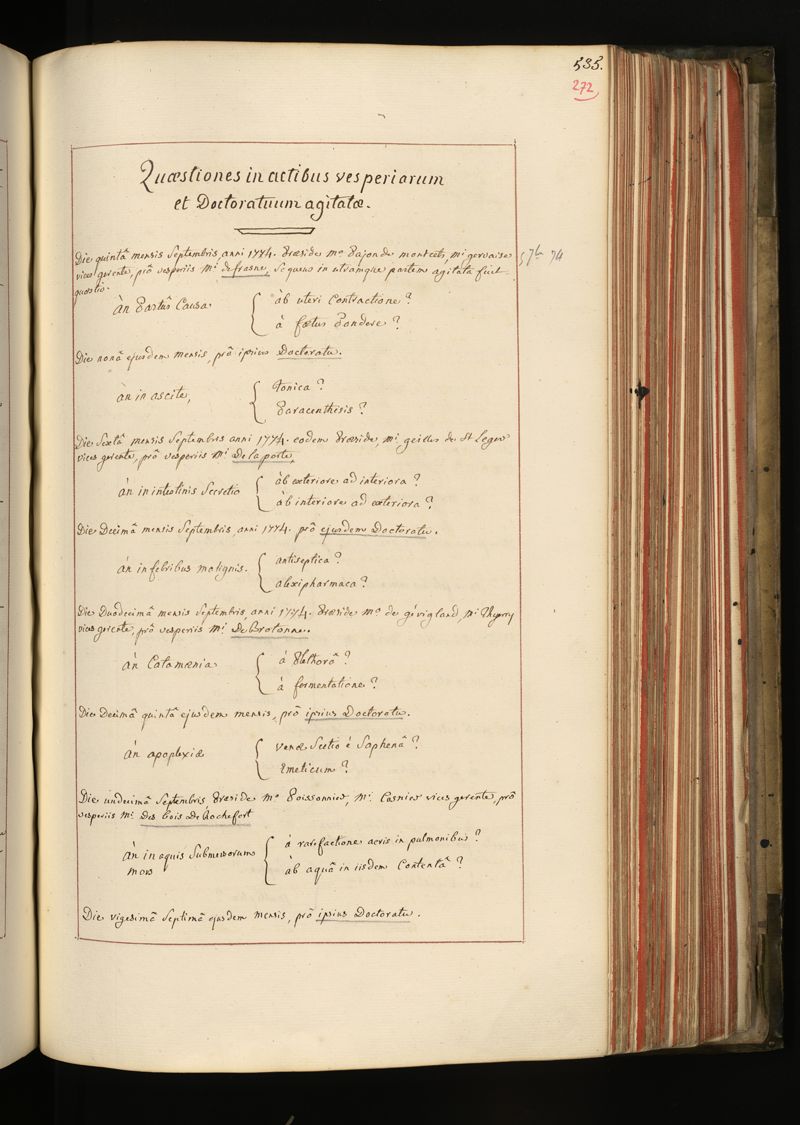 535.
272
Quæstiones in actibus vesperiarum
et Doctoratuum agitatæ.
Die quintâ mensis Septembris, anni 1774. Præside Mo Pajon de montcets, Mi gervaise
vices gerente, prô vesperiis Mi defrasne, Sequens in utramque partem agitata fuit
quæstio.
7bre 74
àn Partûs Causa
àb uteri Contractione?
à fœtus Pondere?
Die nonâ ejusdem mensis, prô ipsius Doctoratu.
àn in ascite,
Tonica?
Paracenthesis?
Die Sextâ mensis Septembris anni 1774. eodem Præside, Mi geilles de St Leger
vices gerente, prô vesperiis Mi De la porte,
àn in intestinis Secretio
àb exteriore ad interiora?
àb interiore ad exteriora?
Die Decimâ mensis Septembris, anni 1774. prô ejusdem Doctoratu.
àn in febribus malignis.
antiseptica?
alexipharmaca?
Die Duodecimâ mensis Septembris, anni 1774. Præside Mo de gévigland, Mi Thyerry
vices gerente, prô vesperiis Mi De Brotonne.
àn Catamænia
à Plethorâ?
à fermentatione?
Die Decimâ quintâ ejusdem mensis, prô ipsius Doctoratu.
àn apoplexiæ
venæ Sectio è Saphenâ?
Emeticum?
Die undecimâ Septembris, Præside Mo Poissonnier, Mi Cosnier vices gerente, prô
vesperiis Mi Des Bois De Rochefort
àn in aquis Submersorum
mors
à rarefactione aeris in pulmonibus?
àb aquâ in iisdem Contentâ?
Die vigesimâ Septimâ ejusdem mensis, prô ipsius Doctoratu.